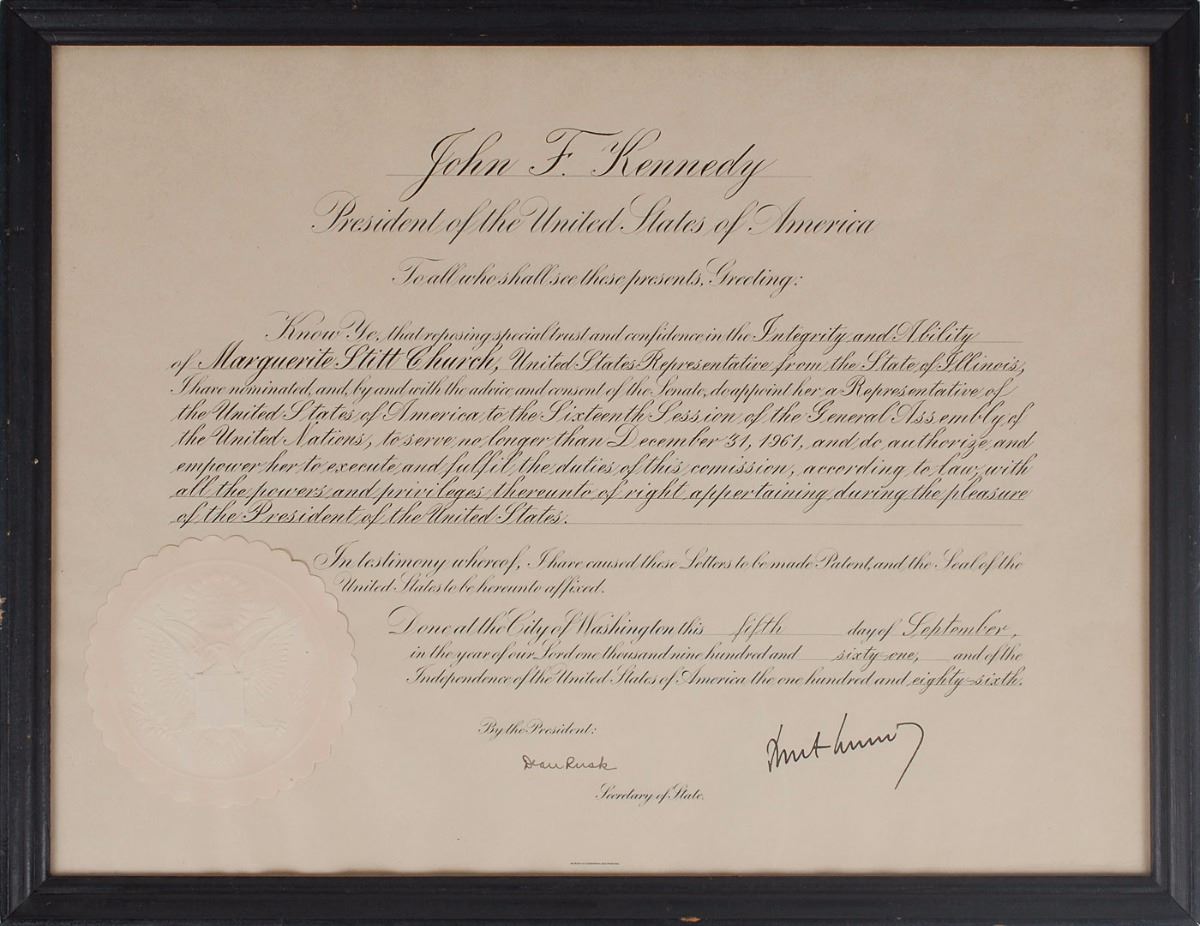 John F. Kennedy
President of the United States of America
To all who shall see these presents, Greeting:
Know Ye, that reposing special trust and confidence in the Integrity and Ability
of Marguerite Stitt Church, United States Representative from the State of Illinois,
I have nominated, and, by and with the advice and consent of the Senate, do appoint her a Representative of
the United States of America to the Sixteenth Session of the General Assembly of
the United Nations, to serve no longer than December 31, 1961, and do authorize and
empower her to execute and fulfil the duties of this comission, according to law, with
all the powers and privileges thereunto of right appertaining during the pleasure
of the President of the United States.
In testimony whereof, I have caused these Letters to be made Patent, and the Seal of the
United States to be hereunto affixed.
Done at the City of Washington this fifth day of September,
in the year of our Lord one thousand nine hundred and sixty-one, and of the
Independence of the United States of America the one hundred and eighty-sixth.
By the President:
Dean Rusk
Secretary of State.